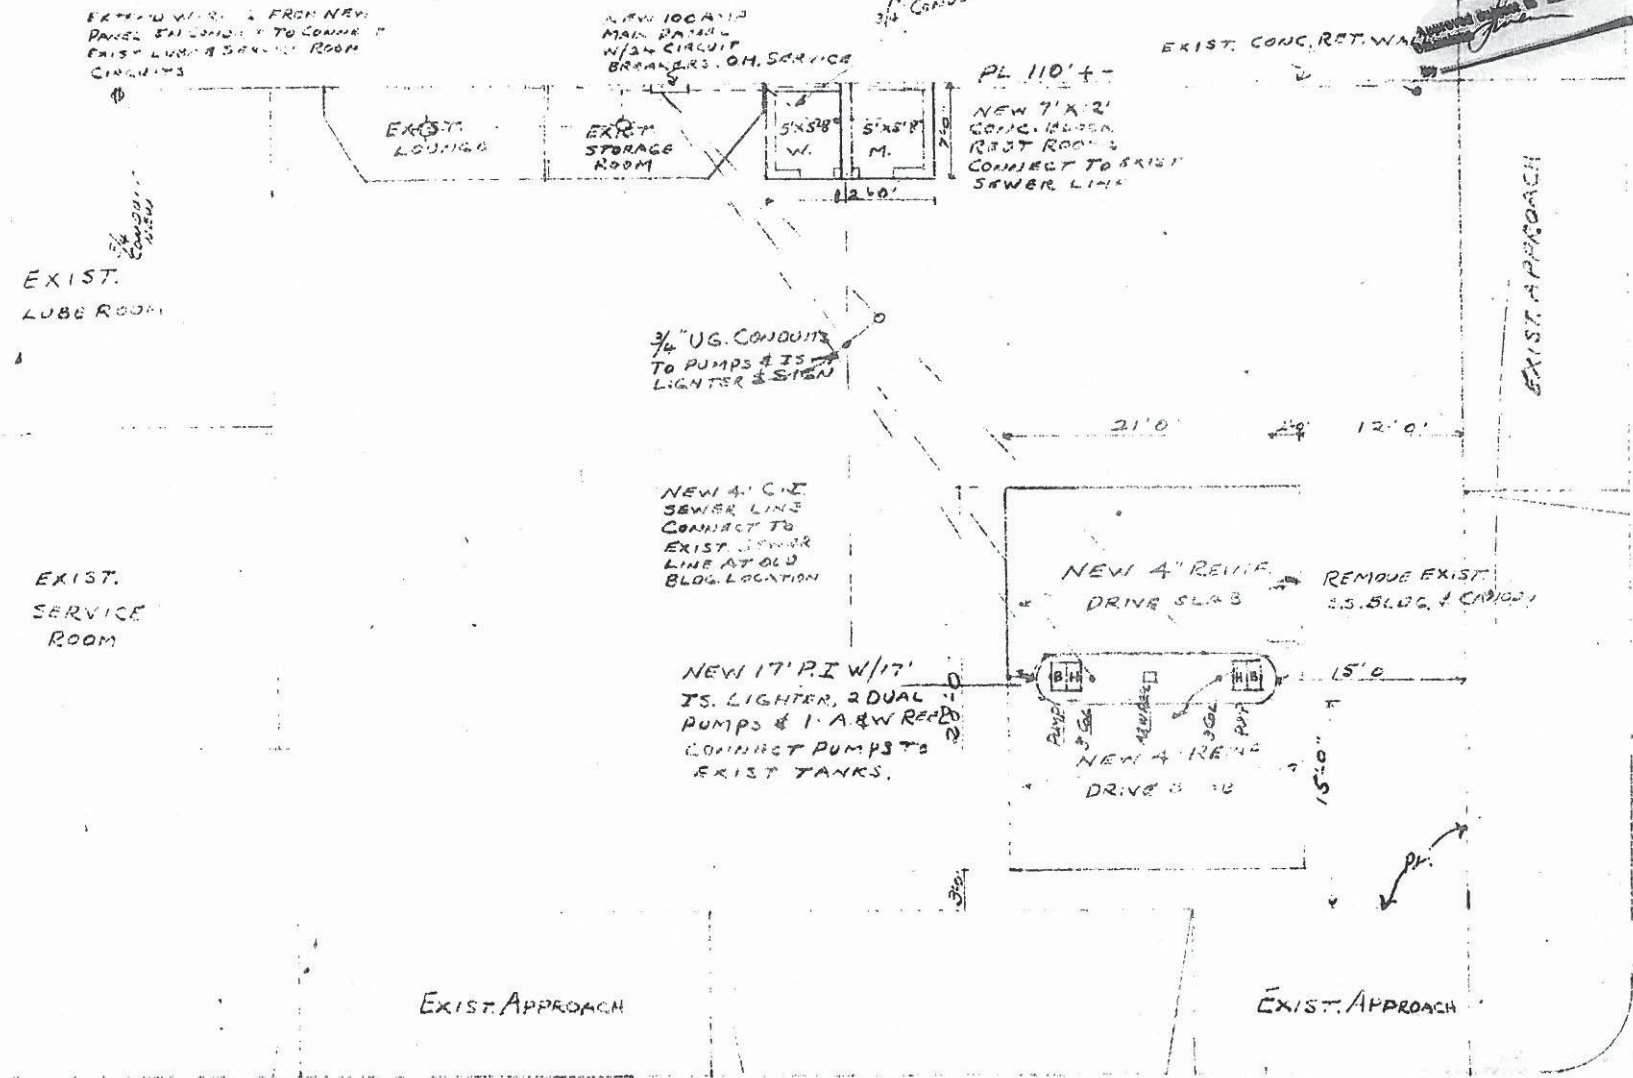 3/4" CONDU
FROM NEW
PANEL TO CONNECT
EXIST LUBE & SERVICE ROOM
CIRCUITS
NEW 100 AMP
MAIN PANEL
W/24 CIRCUIT
BREAKERS. O.H. SERVICE
EXIST. CONC. RET. WALL
PL 110' + -
NEW 7' X 12'
CONC. BLOCK
REST ROOMS
CONNECT TO EXIST
SEWER LINE
EXIST.
LOUNGE
EXIST.
STORAGE
ROOM
5'X5'8"
W.
5'X5'8"
M.
7'0
12'0"
3/4
CONDUIT
NEW
EXIST.
LUBE ROOM
EXIST. APPROACH
3/4" UG. CONDUITS
TO PUMPS & IS
LIGHTER & SIGN
21'0
2'0
12'0"
NEW 4" C.I.
SEWER LINE
CONNECT TO
EXIST. SEWER
LINE AT OLD
BLDG. LOCATION
NEW 4" REINF.
DRIVE SLAB
REMOVE EXIST.
S.S. BLDG. & CANOPY
EXIST.
SERVICE
ROOM
NEW 17' P.I W/17'
IS. LIGHTER, 2 DUAL
PUMPS & 1 A & W REEL
CONNECT PUMPS TO
EXIST TANKS.
28'-0
B H
H B
15'0
PUMP
3" COL
3" COL
PUMP
NEW 4" REINF
DRIVE SLAB
15'-0"
3'0"
PL.
EXIST. APPROACH
EXIST. APPROACH